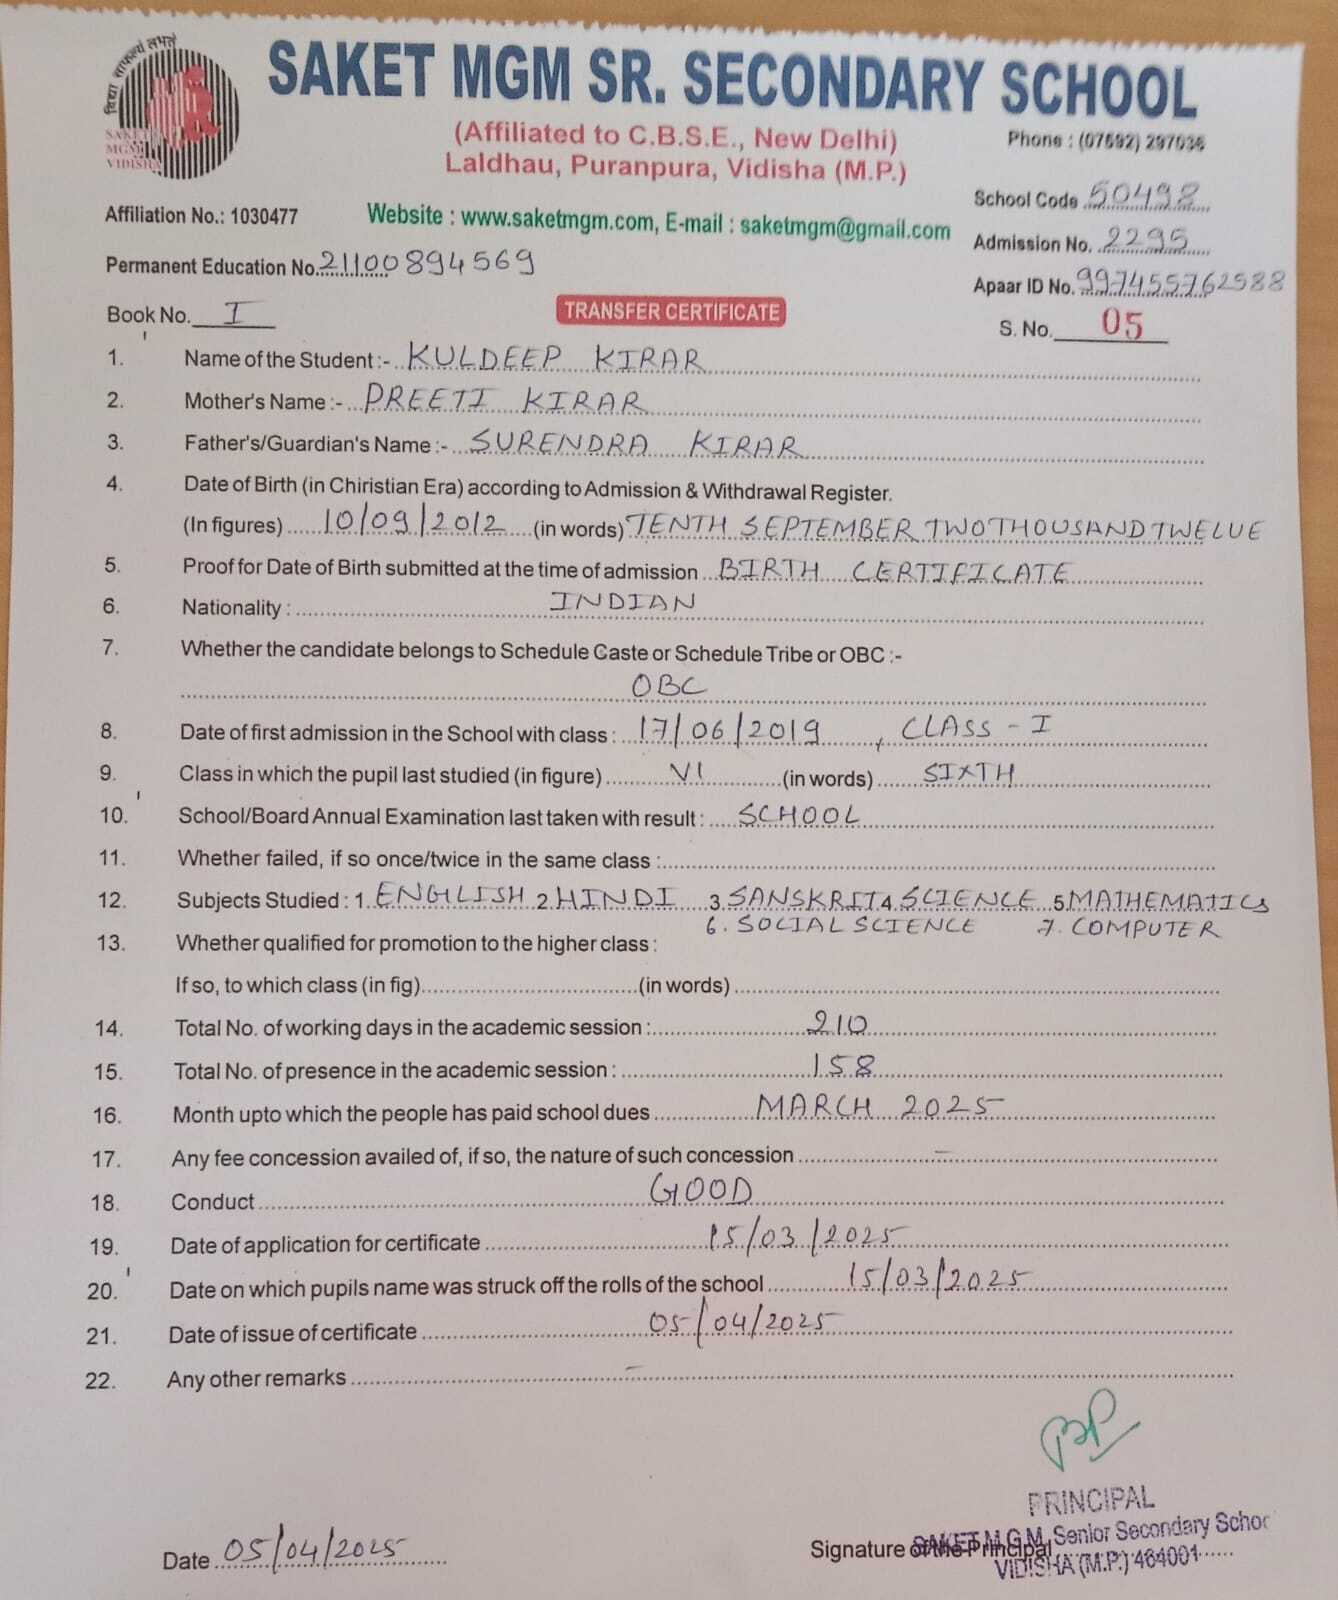 विद्या साफल्यं लभते
SAKET
MGM
VIDISHA
SAKET MGM SR. SECONDARY SCHOOL
(Affiliated to C.B.S.E., New Delhi)
Phone : (07592) 297036
Laldhau, Puranpura, Vidisha (M.P.)
School Code 50498
Affiliation No.: 1030477
Website : www.saketmgm.com, E-mail : saketmgm@gmail.com
Admission No. 2295
Permanent Education No. 21100894569
Apaar ID No. 997455762588
Book No. I
TRANSFER CERTIFICATE
S. No. 05
1. Name of the Student :- KULDEEP KIRAR
2. Mother's Name :- PREETI KIRAR
3. Father's/Guardian's Name :- SURENDRA KIRAR
4. Date of Birth (in Chiristian Era) according to Admission & Withdrawal Register.
(In figures) 10/09/2012 (in words) TENTH SEPTEMBER TWOTHOUSAND TWELVE
5. Proof for Date of Birth submitted at the time of admission BIRTH CERTIFICATE
6. Nationality : INDIAN
7. Whether the candidate belongs to Schedule Caste or Schedule Tribe or OBC :-
OBC
8. Date of first admission in the School with class : 17/06/2019, CLASS - I
9. Class in which the pupil last studied (in figure) VI (in words) SIXTH
10. School/Board Annual Examination last taken with result : SCHOOL
11. Whether failed, if so once/twice in the same class :
12. Subjects Studied : 1. ENGLISH 2. HINDI 3. SANSKRIT 4. SCIENCE 5. MATHEMATICS
6. SOCIAL SCIENCE 7. COMPUTER
13. Whether qualified for promotion to the higher class :
If so, to which class (in fig) (in words)
14. Total No. of working days in the academic session : 210
15. Total No. of presence in the academic session : 158
16. Month upto which the people has paid school dues MARCH 2025
17. Any fee concession availed of, if so, the nature of such concession –
18. Conduct GOOD
19. Date of application for certificate 15/03/2025
20. Date on which pupils name was struck off the rolls of the school 15/03/2025
21. Date of issue of certificate 05/04/2025
22. Any other remarks –
PRINCIPAL
SAKET M.G.M. Senior Secondary School
Date 05/04/2025
Signature of the Principal
VIDISHA (M.P.) 464001